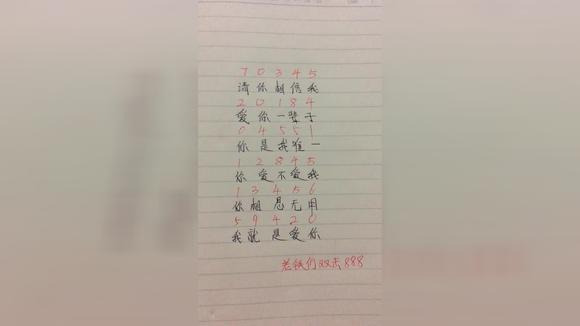 70345
请你相信我
20184
爱你一辈子
04551
你是我唯一
12845
你爱不爱我
13456
你相思无用
59420
我就是爱你
老铁们双击888